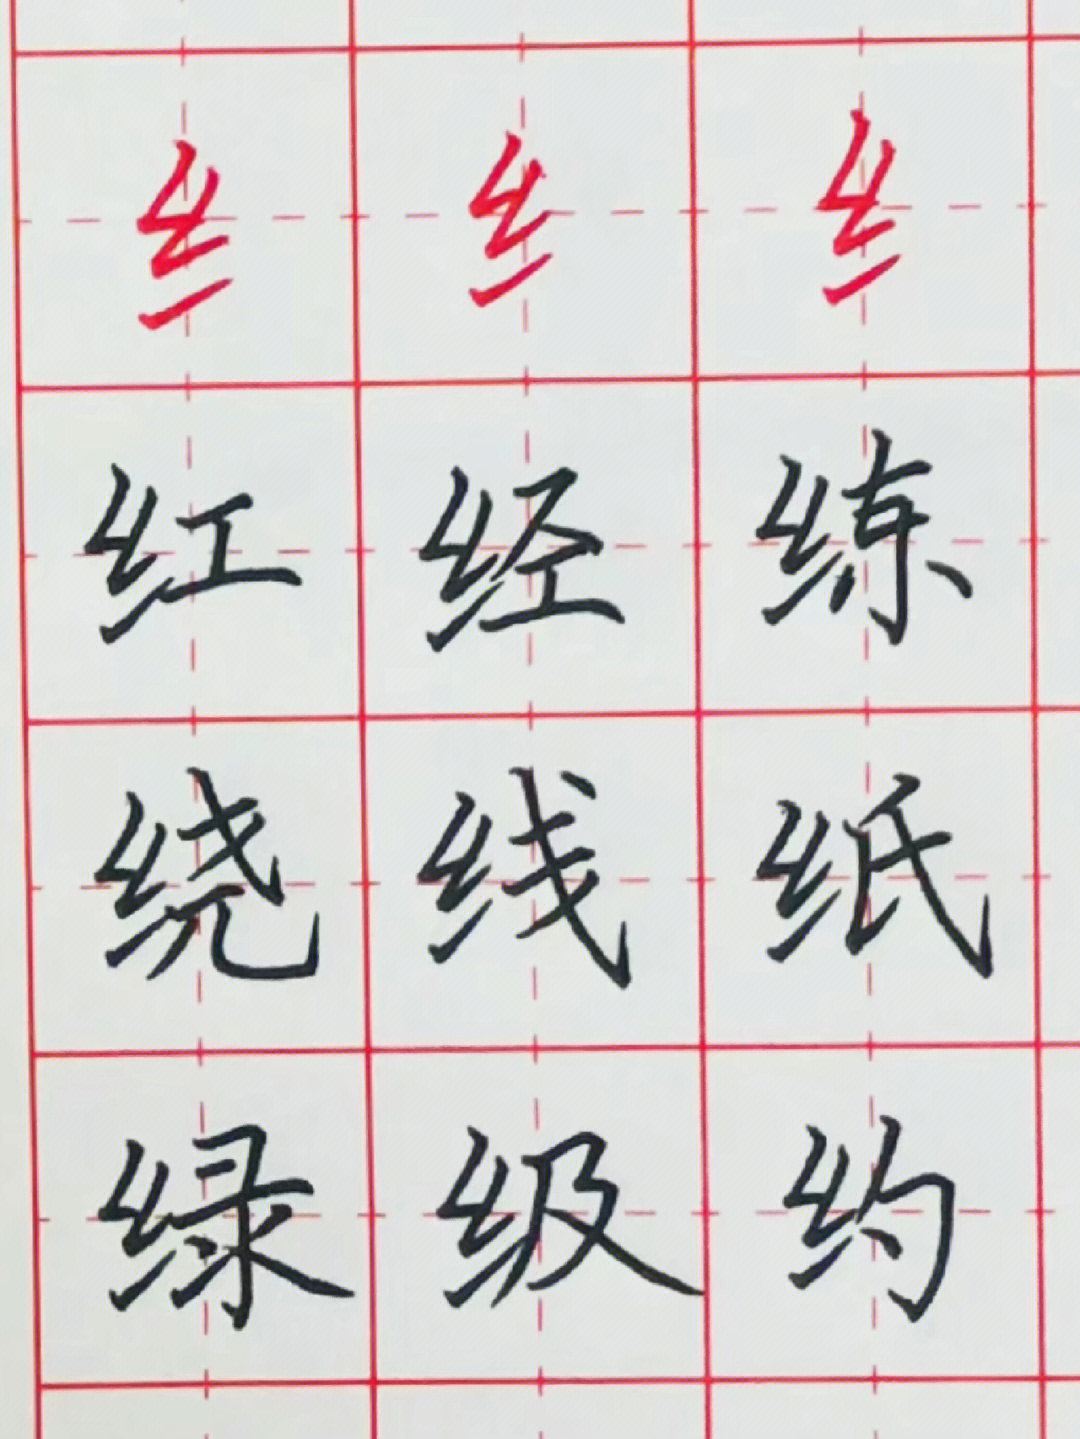 纟纟纟
红经练
绕线纸
绿级约